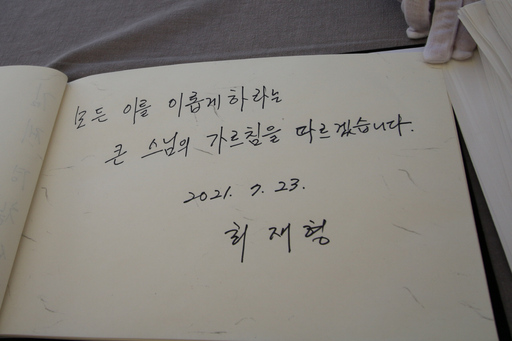 모든 이를 이롭게하라는
큰 스님의 가르침을 따르겠습니다.
2021. 7. 23.
최재형